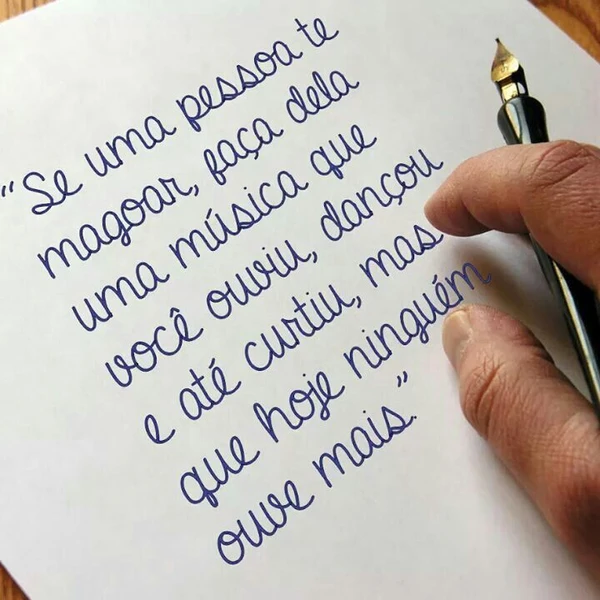 "Se uma pessoa te
magoar, faça dela
uma música que
você ouviu, dançou
e até curtiu, mas
que hoje ninguém
ouve mais."